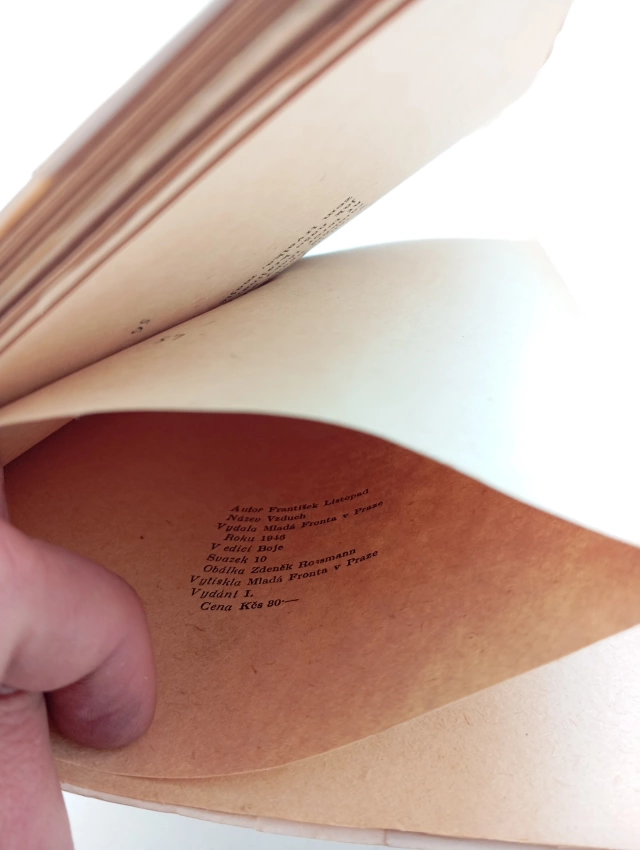 Autor František Listopad
Název Vzduch
Vydala Mladá Fronta v Praze
Roku 1946
V edici Boje
Svazek 10
Obálka Zdeněk Rossmann
Vytiskla Mladá Fronta v Praze
Vydání I.
Cena Kčs 30·—